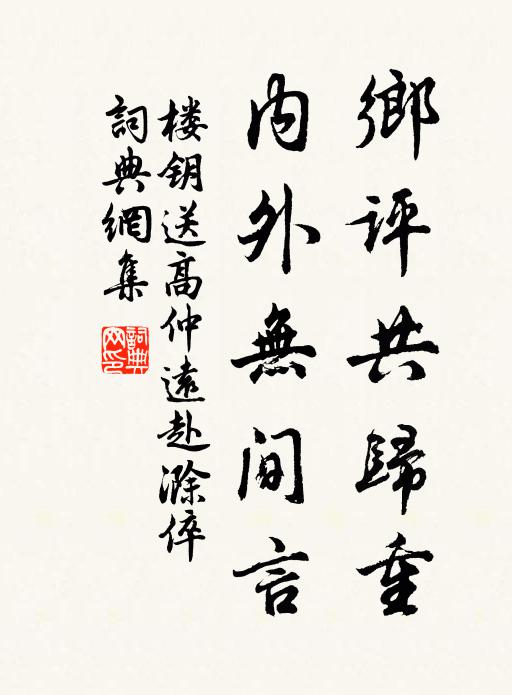 鄉評共歸重
內外無間言
楼钥送高仲遠赴滁倅
詞典網集
詞典網印